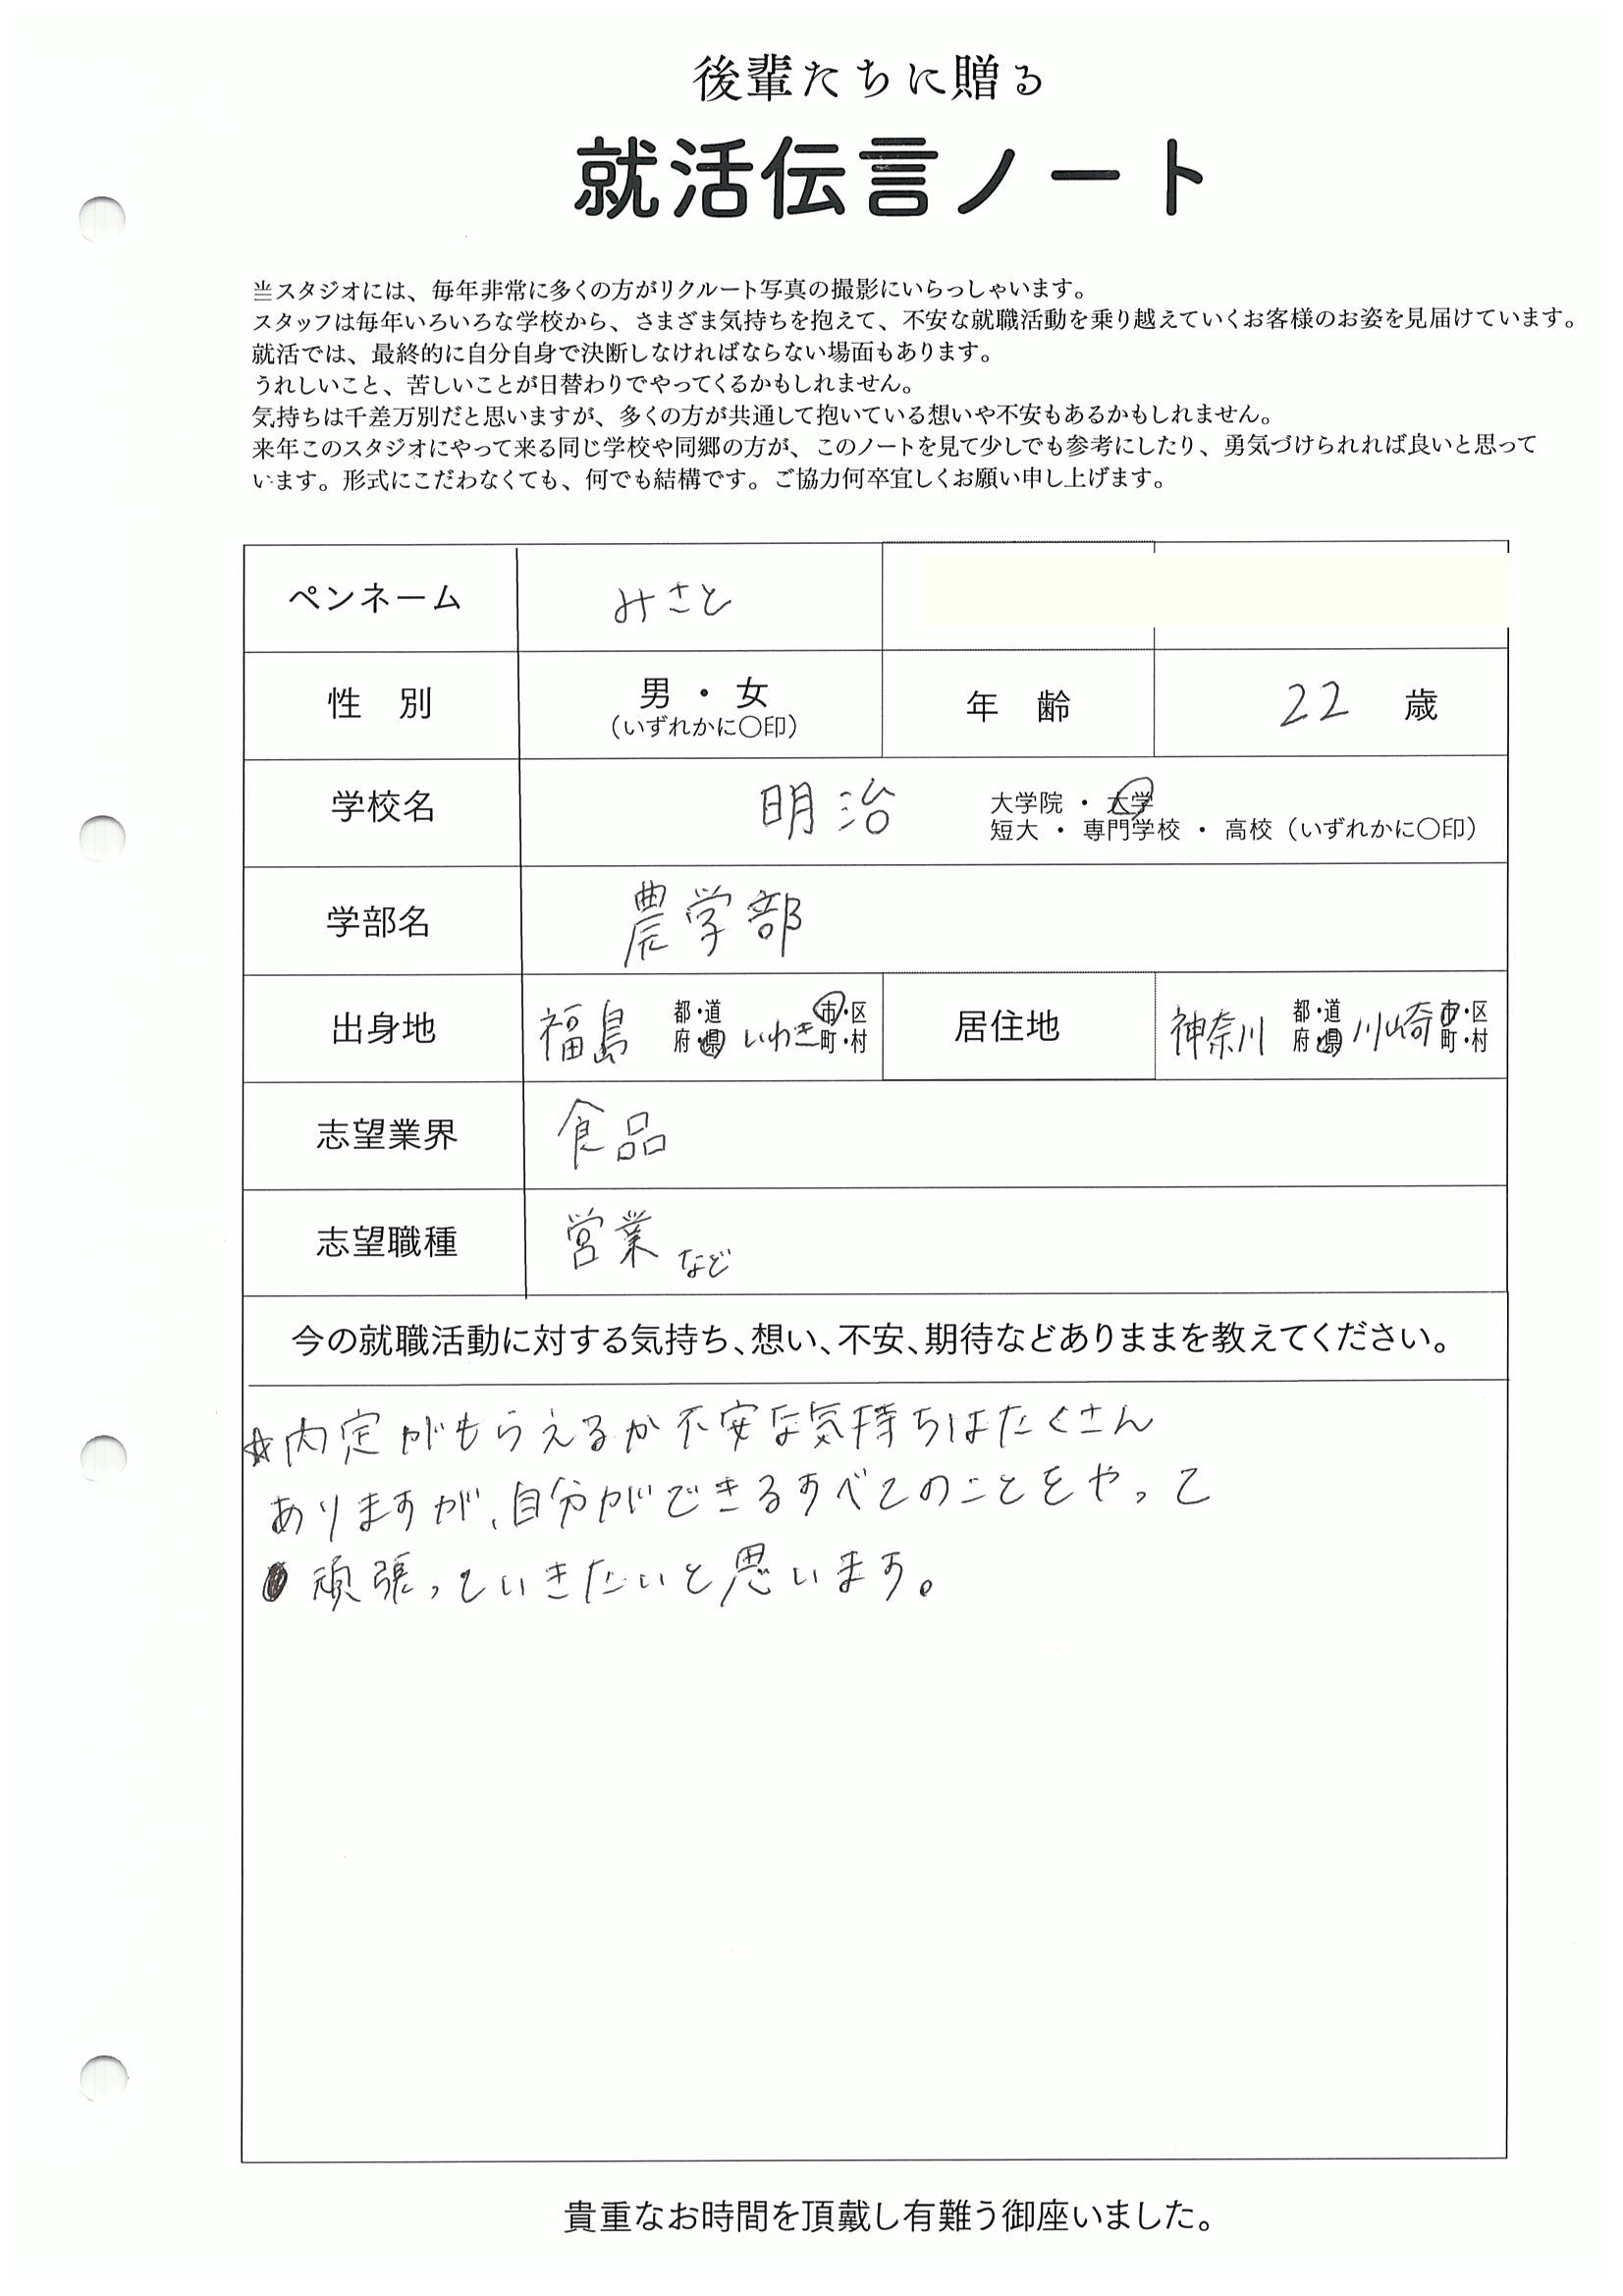 後輩たちに贈る
就活伝言ノート
当スタジオには、毎年非常に多くの方がリクルート写真の撮影にいらっしゃいます。
スタッフは毎年いろいろな学校から、さまざま気持ちを抱えて、不安な就職活動を乗り越えていくお客様のお姿を見届けています。
就活では、最終的に自分自身で決断しなければならない場面もあります。
うれしいこと、苦しいことが日替わりでやってくるかもしれません。
気持ちは千差万別だと思いますが、多くの方が共通して抱いている想いや不安もあるかもしれません。
来年このスタジオにやって来る同じ学校や同郷の方が、このノートを見て少しでも参考にしたり、勇気づけられれば良いと思って
います。形式にこだわなくても、何でも結構です。ご協力何卒宜しくお願い申し上げます。
ペンネーム みさと
性 別 男 ・ 女 年 齢 22 歳
（いずれかに〇印）
学校名 明治 大学院 ・ 大学
短大 ・ 専門学校 ・ 高校（いずれかに〇印）
学部名 農学部
出身地 福島 都・道 府・県 いわき 市・区 町・村 居住地 神奈川 都・道 府・県 川崎 市・区 町・村
志望業界 食品
志望職種 営業など
今の就職活動に対する気持ち、想い、不安、期待などありままを教えてください。
☆内定がもらえるか不安な気持ちはたくさん
ありますが、自分ができるすべてのことをやって
頑張っていきたいと思います。
貴重なお時間を頂戴し有難う御座いました。